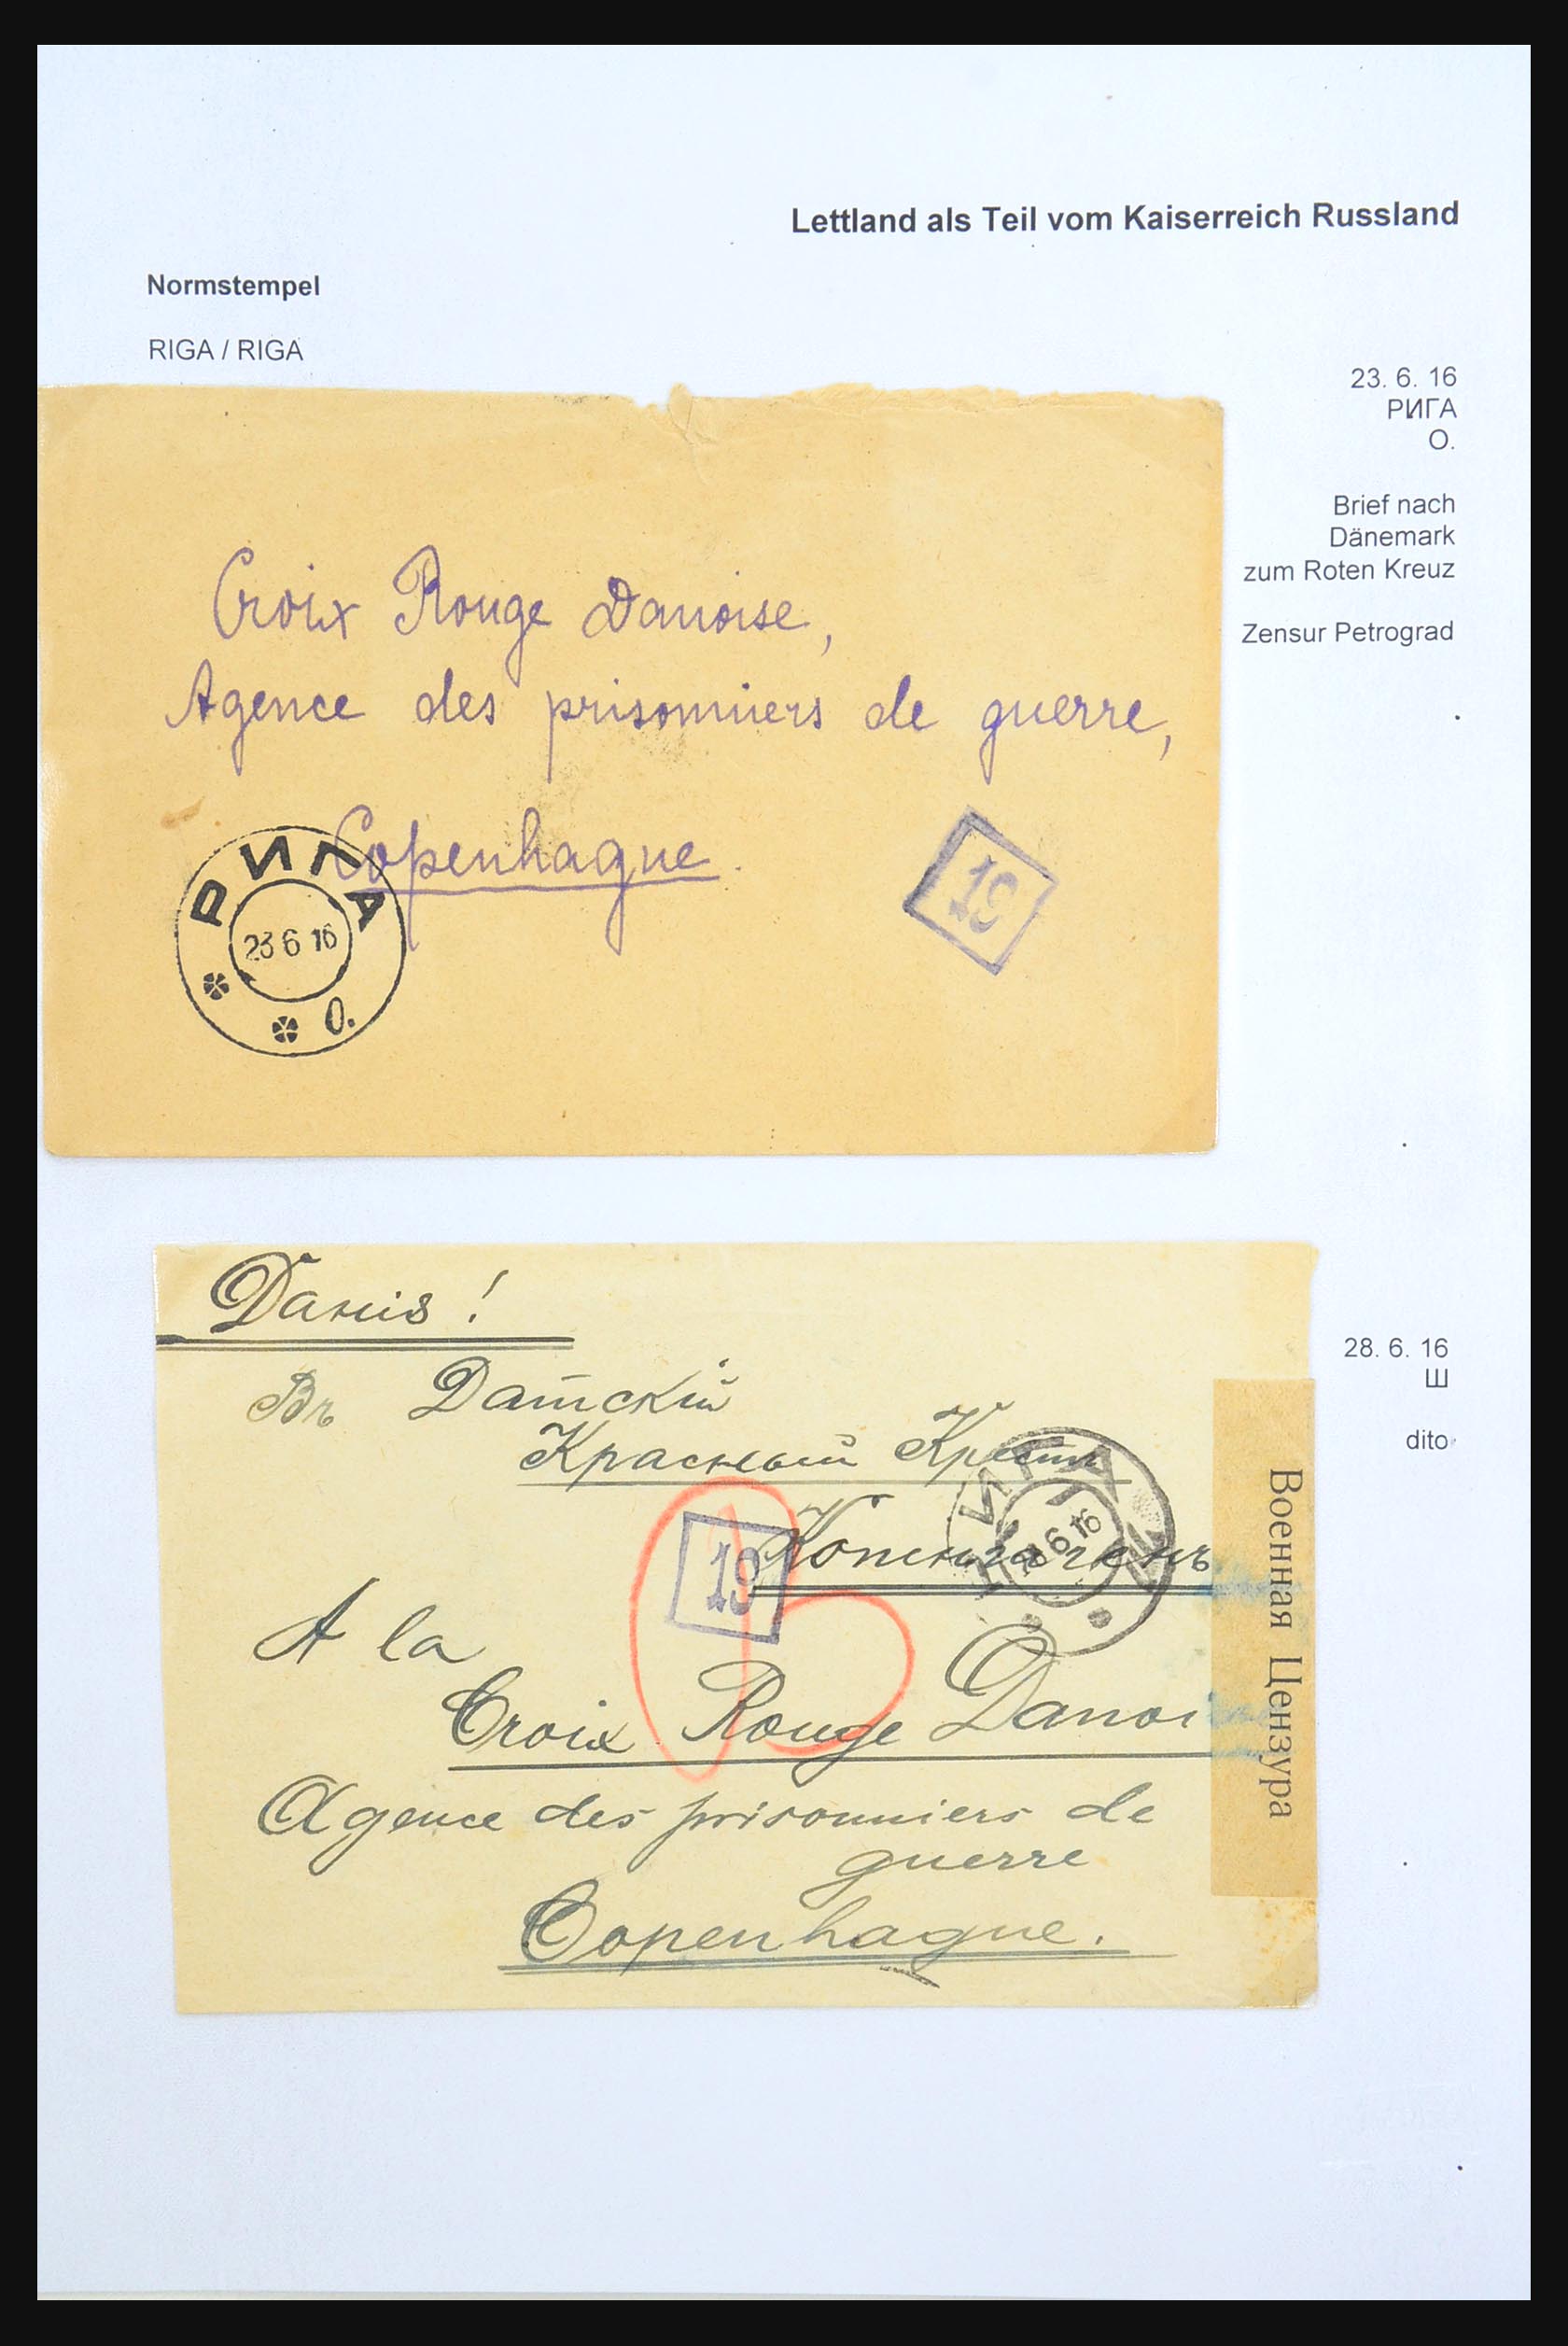 Lettland als Teil vom Kaiserreich Russland
Normstempel
RIGA / RIGA
23. 6. 16
РИГА
О.
Brief nach
Dänemark
zum Roten Kreuz
Zensur Petrograd
Croix Rouge Danoise,
Agence des prisonniers de guerre,
Copenhague.
РИГА
23 6 16
О.
19
Данiя!
Въ Датскiй
Красный Крестъ
Копенгагенъ
РИГА
28 6 16
Ш
19
A la
Croix Rouge Danoi
Agence des prisonniers de
guerre
Copenhague.
Военная Цензура
28. 6. 16
Ш
dito